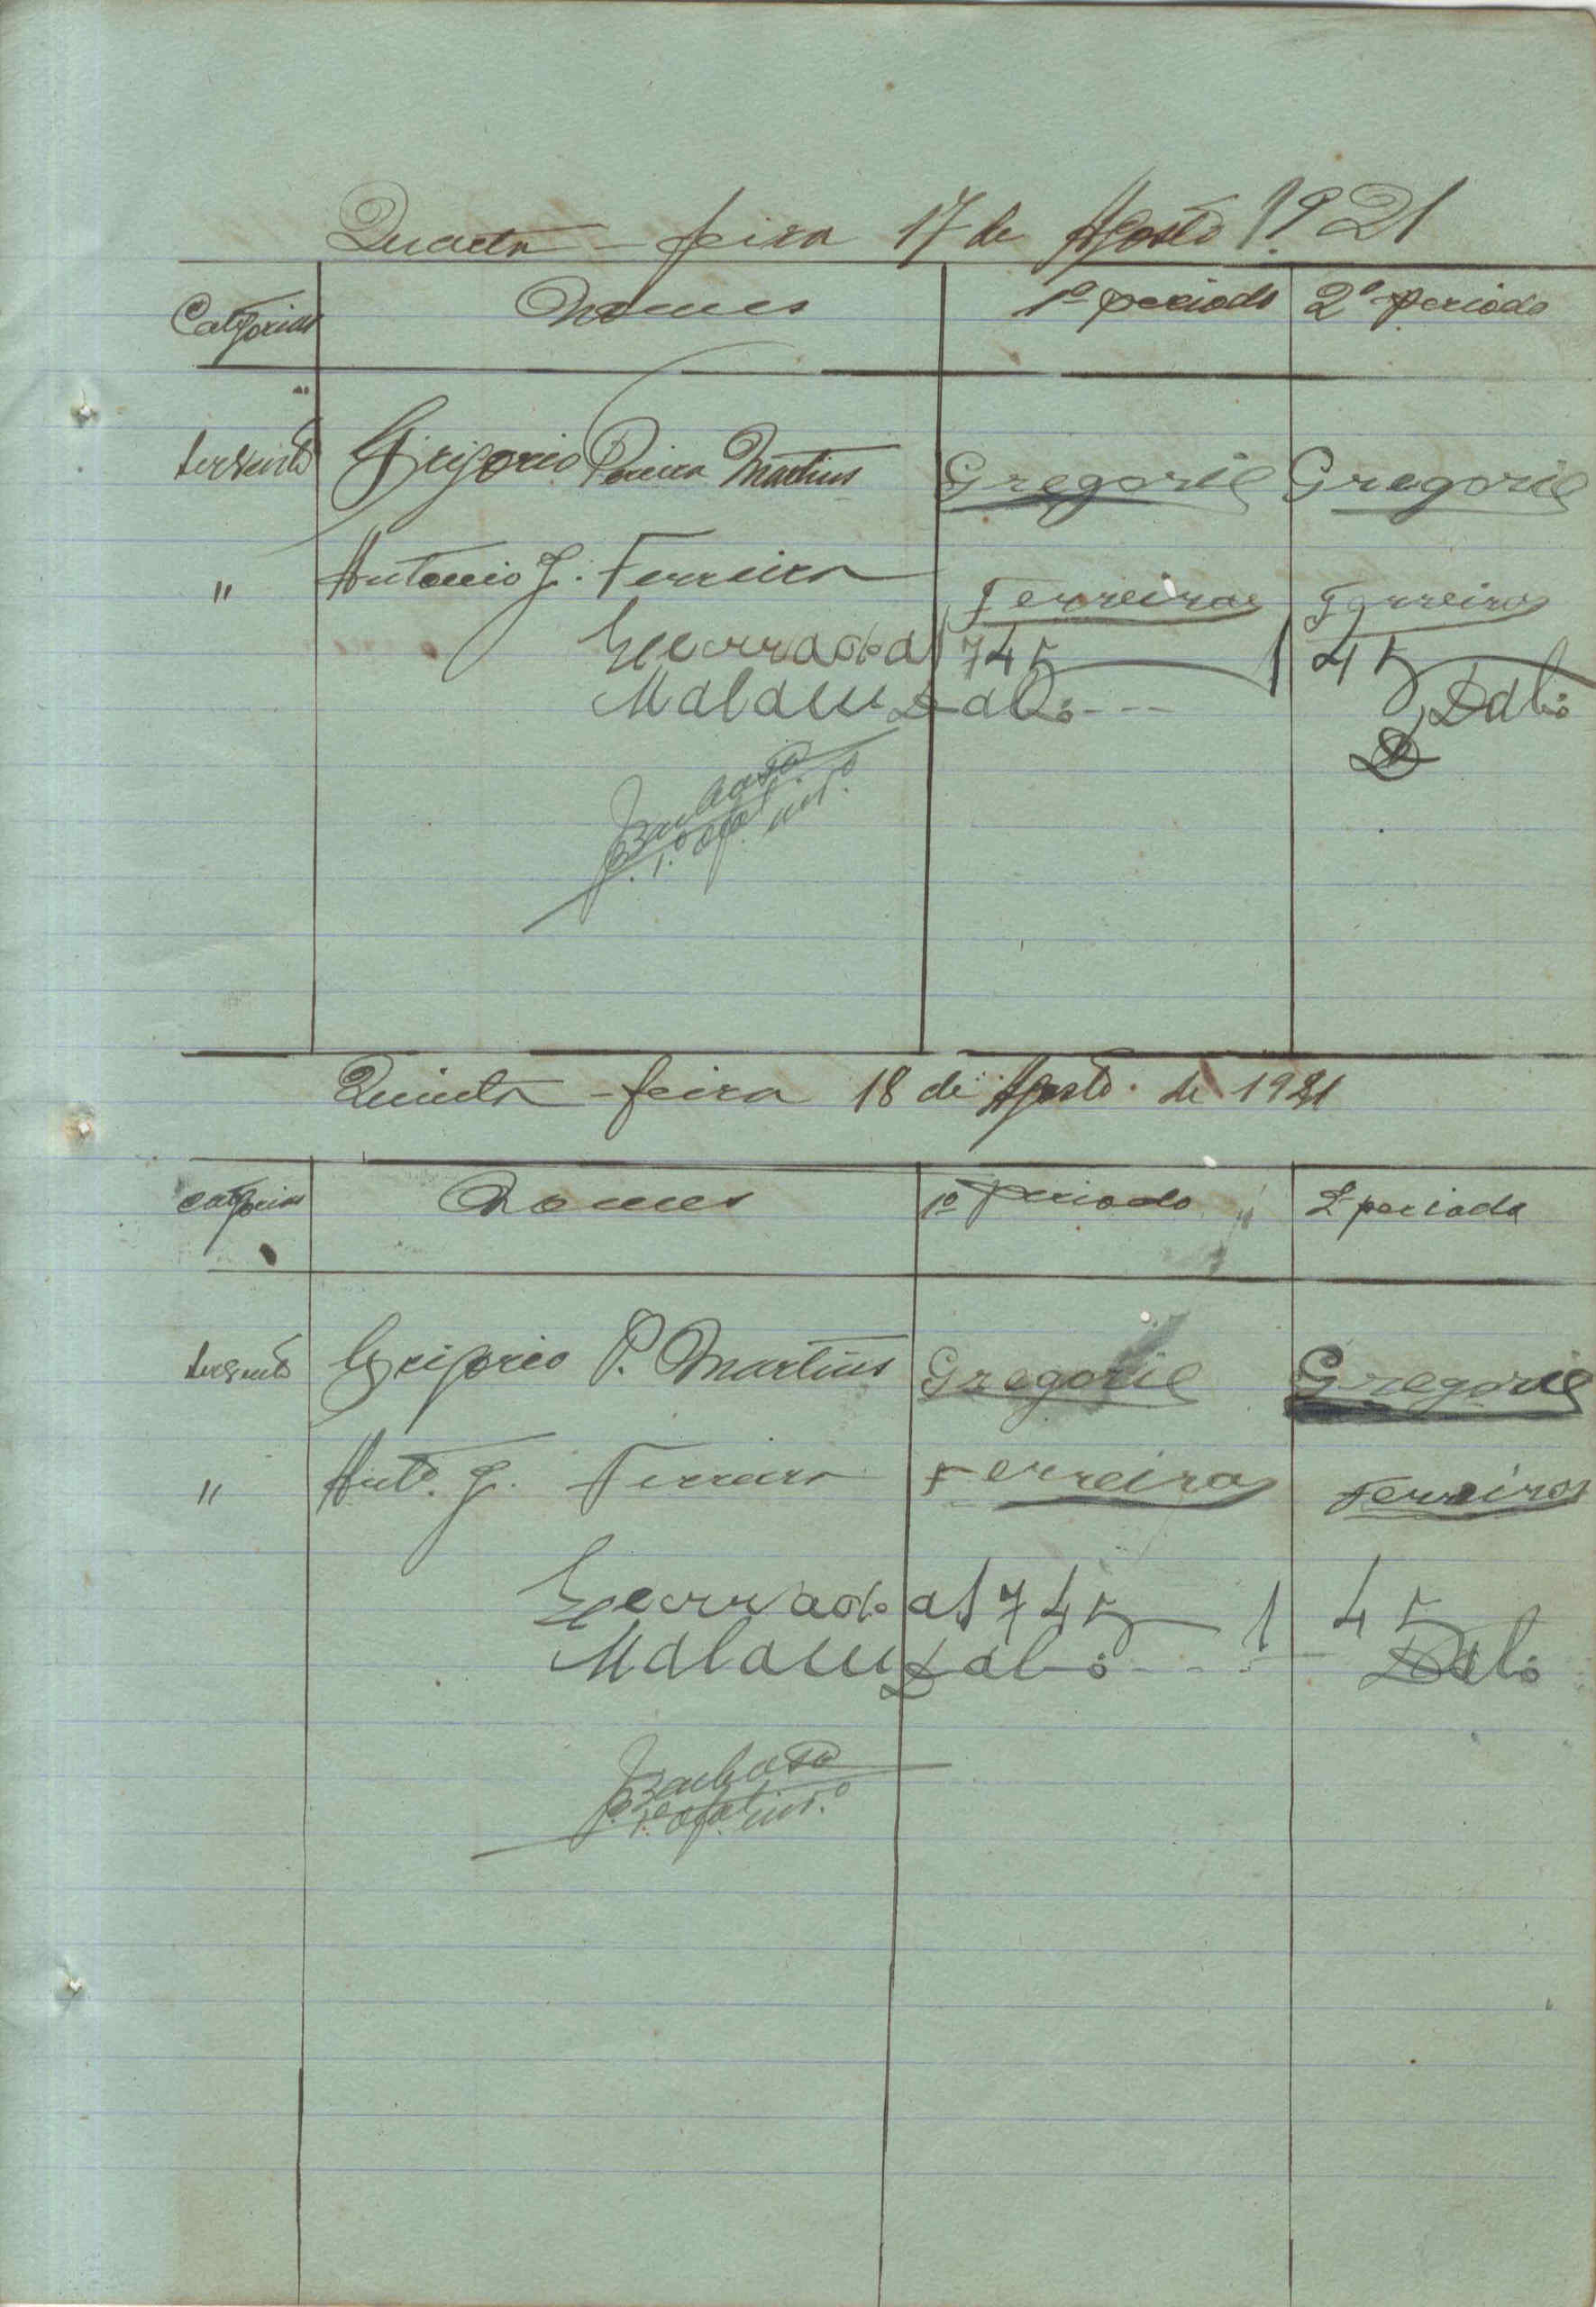 Quarta-feira 17 de Agosto 1921
Categorias Nomes 1º periodo 2º periodo
servente Grigorio Pereira Martins Gregorie Gregorie
" Antonio J. Ferreira Ferreira Ferreira
Encerrado a 745 1 45
Malam Dabó Dabó
Barbosa
1º of. int.º
Quinta-feira 18 de Agosto de 1921
Categorias Nomes 1º periodo 2º periodo
servente Grigorio P. Martins Gregorie Gregorie
" Antº. J. Ferreira Ferreira Ferreira
Encerrado a 745 1 45
Malam Dabó Dabó
Barbosa
1º of. int.º